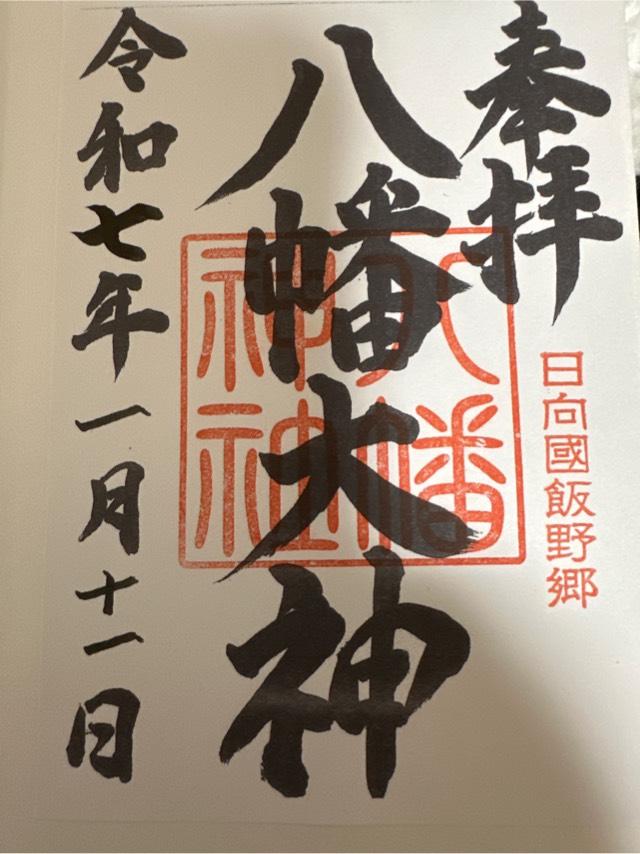 奉拝
日向國飯野郷
八幡大神
八幡
神社
令和七年一月十一日